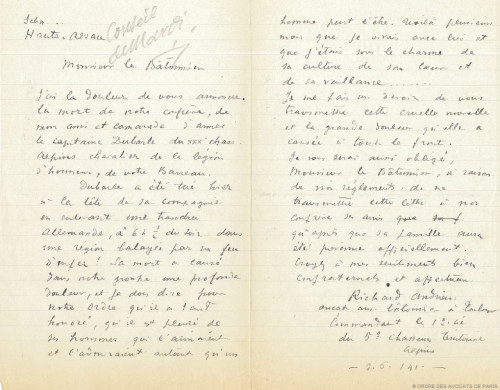 Haute-Alsace
Conseil
de Mardi
Monsieur le Bâtonnier
J'ai la douleur de vous annoncer
la mort de notre confrère, de
mon ami et camarade d'armes
le capitaine Dubarle du chass.
Alpins chevalier de la légion
d'honneur, de votre Barreau.
Dubarle a été tué hier
à la tête de sa compagnie
en enlevant une tranchée
Allemande, à 6h ½ du soir dans
une région balayée par un feu
d'enfer! Sa mort a causé
dans notre groupe une profonde
douleur, et je dois dire pour
notre Ordre qu'il a tant
honoré, qu'il est pleuré de
ses hommes qui l'aimaient
et l'admiraient autant qu'un
homme peut l'être. Voilà plusieurs
mois que je vivais avec lui et
que j'étais sous le charme de
sa culture de son cœur et
de sa vaillance........
Je me fais un devoir de vous
transmettre cette cruelle nouvelle
et la grande douleur qu'elle a
causée à tout le front.
Je vous serai aussi obligé,
Monsieur le Bâtonnier, à raison
de nos règlements, de ne
transmettre cette lettre à nos
confrères ses amis que
qu'après que sa famille aura
été prévenue officiellement.
Croyez à mes sentiments bien
confraternels et affectueux.
Richard Andrieu
avocat anc. bâtonnier à Toulon
Commandant la Cie
du 5e Chasseurs
Alpins
© ORDRE DES AVOCATS DE PARIS